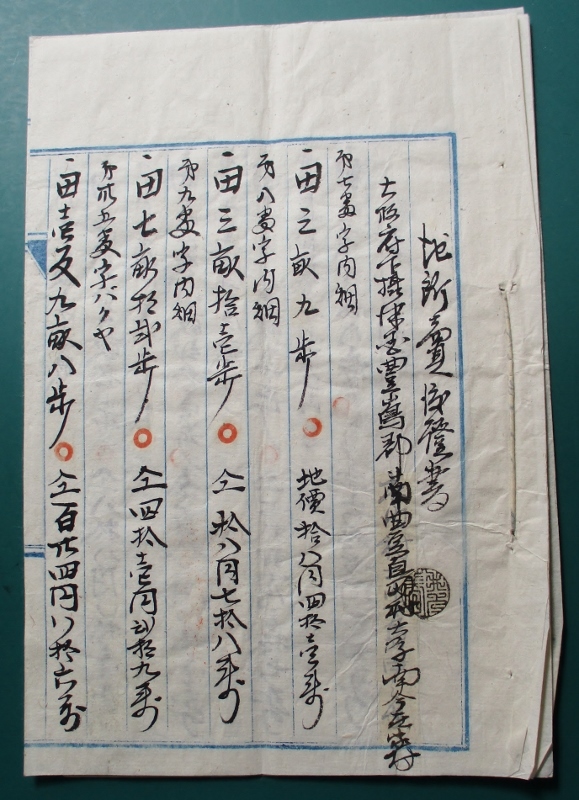 地所賣渡證書
大阪府下攝津国豊嶋郡南豊島村大字南今在家村
第七番字内畑
一田三畝九歩 地價拾八円四拾壱銭
第八番字内畑
一田三畝拾壱歩 仝拾八円七拾八銭
第九番字内畑
一田七畝拾弐歩 仝四拾壱円弐拾九銭
第廿五番字バクヤ
一田壱反九畝八歩 仝百廿四円八拾六銭